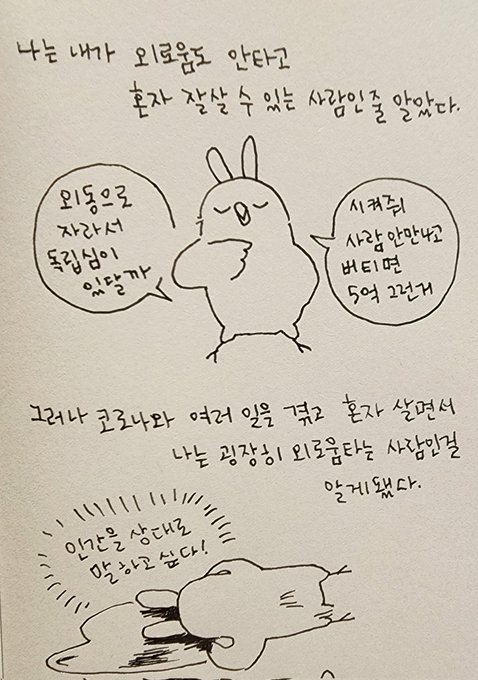 나는 내가 외로움도 안타고
혼자 잘살 수 있는 사람인줄 알았다.
외동으로
자라서
독립심이
있달까
시켜줘
사람안만나고
버티면
5억 그런거
그러나 코로나와 여러 일을 겪고 혼자 살면서
나는 굉장히 외로움타는 사람인걸
알게됐다.
인간을 상대로
말하고싶다!